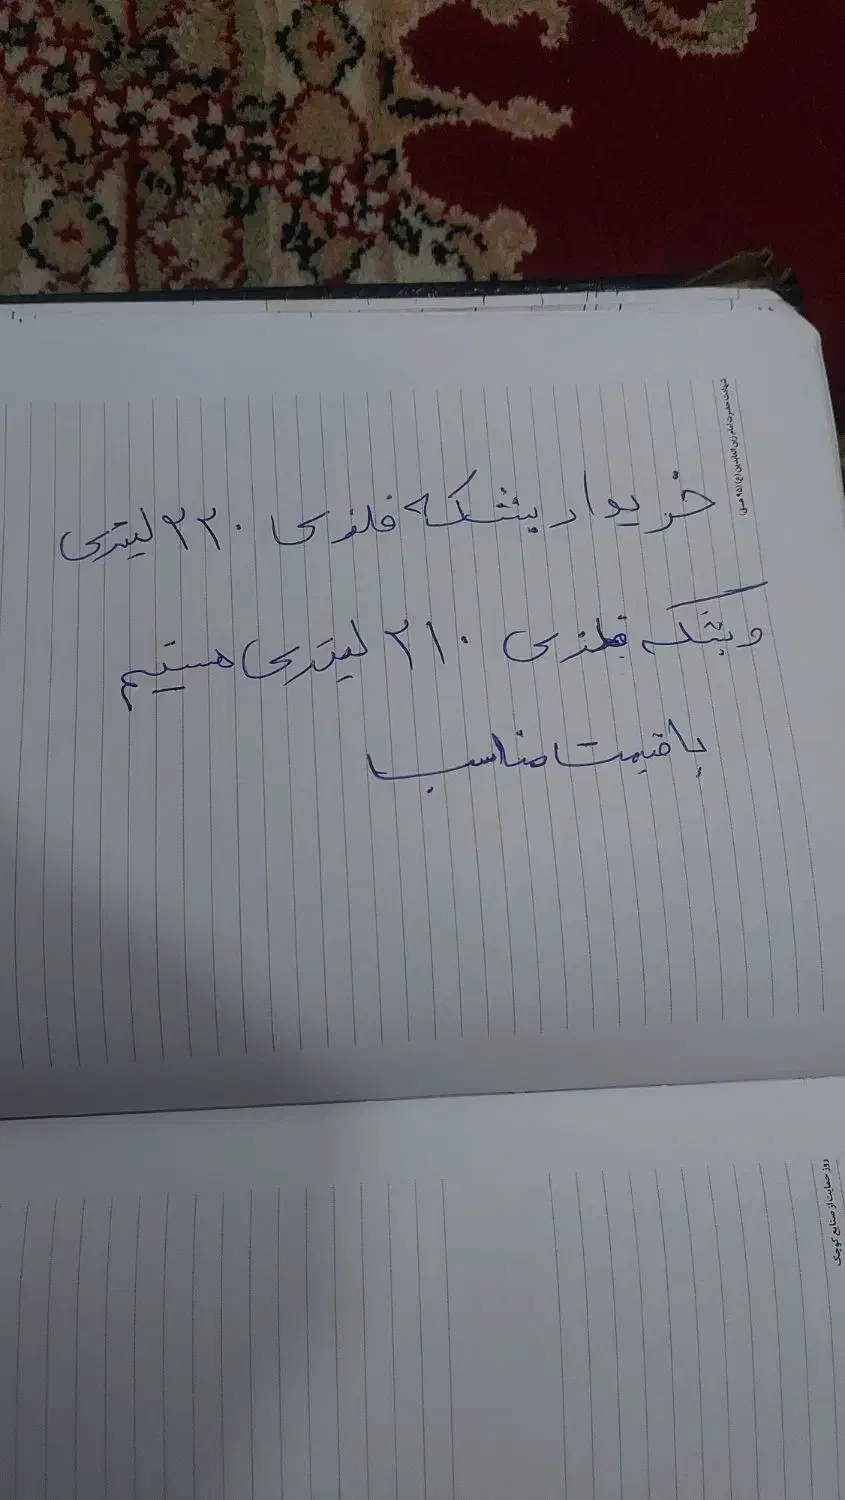 خریدار بشکه فلزی ۲۲۰ لیتری
و بشکه فلزی ۲۱۰ لیتری هستیم
با قیمت مناسب
شهادت حضرت امام زین العابدین (ع) (۹۵ ه‍.ق)
روز حمایت از صنایع کوچک